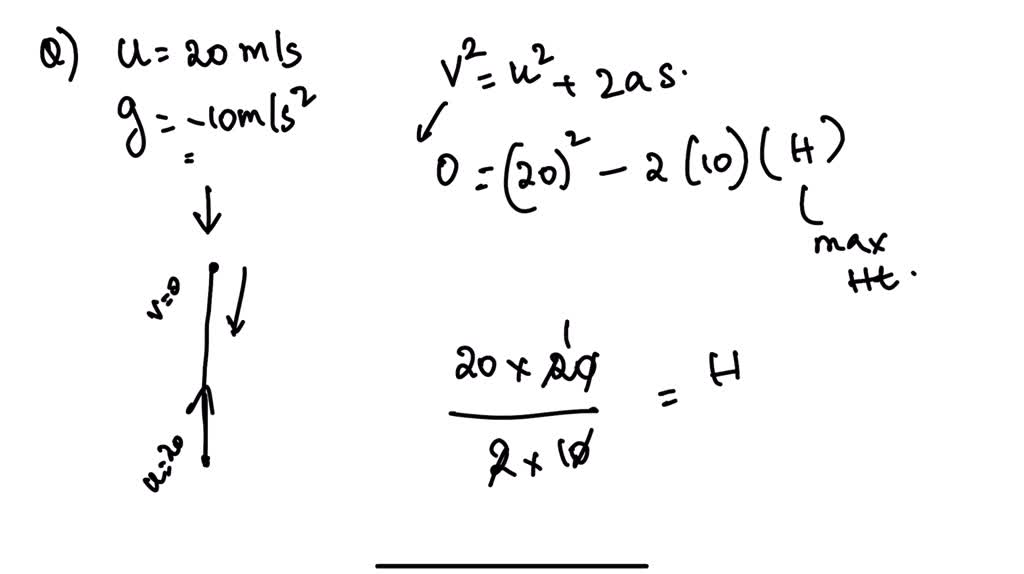 Q) u = 20 m/s
g = -10 m/s²
v=0
u=20
V² = u² + 2as.
0 = (20)² - 2(10)(H)
max
Ht.
1
20 × 20
2 × 10
= H